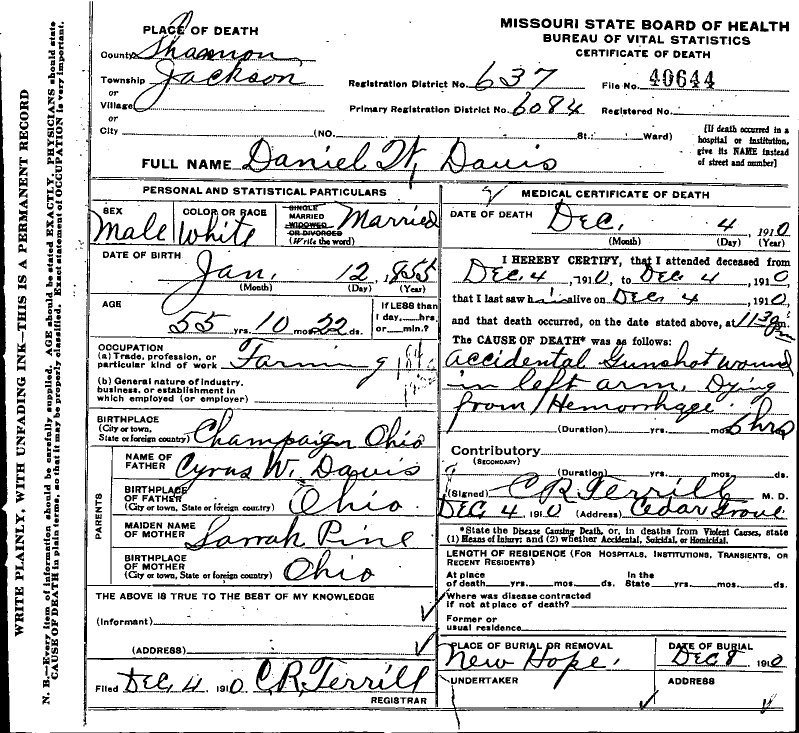 MISSOURI STATE BOARD OF HEALTH
BUREAU OF VITAL STATISTICS
CERTIFICATE OF DEATH
PLACE OF DEATH
County Shannon
Township Jackson
or
Village
or
City
Registration District No. 637
File No. 40644
Primary Registration District No. 6084
Registered No.
(NO. St.; Ward)
[If death occurred in a
hospital or institution,
give its NAME instead
of street and number]
FULL NAME Daniel W. Davis
PERSONAL AND STATISTICAL PARTICULARS
SEX
Male
COLOR OR RACE
White
SINGLE
MARRIED
WIDOWED
OR DIVORCED
(Write the word)
Married
DATE OF BIRTH
Jan. 12, 1855
(Month) (Day) (Year)
AGE
55 yrs. 10 mos. 22 ds.
If LESS than
1 day, hrs.
or min.?
OCCUPATION
(a) Trade, profession, or
particular kind of work Farming
(b) General nature of industry,
business, or establishment in
which employed (or employer)
BIRTHPLACE
(City or town,
State or foreign country) Champaign Ohio
PARENTS
NAME OF
FATHER Cyrus W. Davis
BIRTHPLACE
OF FATHER
(City or town, State or foreign country) Ohio
MAIDEN NAME
OF MOTHER Sarrah Pine
BIRTHPLACE
OF MOTHER
(City or town, State or foreign country) Ohio
THE ABOVE IS TRUE TO THE BEST OF MY KNOWLEDGE
(Informant)
(ADDRESS)
Filed Dec, 4 1910 C.R. Terrill
REGISTRAR
MEDICAL CERTIFICATE OF DEATH
DATE OF DEATH Dec. 4 1910
(Month) (Day) (Year)
I HEREBY CERTIFY, that I attended deceased from
Dec. 4, 1910, to Dec 4 1910
that I last saw him alive on Dec 4 1910,
and that death occurred, on the date stated above, at 11 30 m.
The CAUSE OF DEATH* was as follows:
Accidental Gunshot wound
in left arm, Dying
from Hemorrhage.
(Duration) yrs. mos. 6 hrs
Contributory
(SECONDARY)
(Duration) yrs. mos. ds.
(Signed) C R Terrill M. D.
Dec 4 1910 (Address) Cedar Grove
*State the Disease Causing Death, or, in deaths from Violent Causes, state
(1) Means of Injury; and (2) whether Accidental, Suicidal, or Homicidal.
LENGTH OF RESIDENCE (FOR HOSPITALS, INSTITUTIONS, TRANSIENTS, OR
RECENT RESIDENTS)
At place
of death yrs. mos. ds.
In the
State yrs. mos. ds.
Where was disease contracted
if not at place of death?
Former or
usual residence
PLACE OF BURIAL OR REMOVAL
New Hope.
DATE OF BURIAL
Dec 8 1910
UNDERTAKER
ADDRESS
WRITE PLAINLY, WITH UNFADING INK—THIS IS A PERMANENT RECORD
N. B.—Every item of information should be carefully supplied. AGE should be stated EXACTLY. PHYSICIANS should state
CAUSE OF DEATH in plain terms, so that it may be properly classified. Exact statement of OCCUPATION is very important.